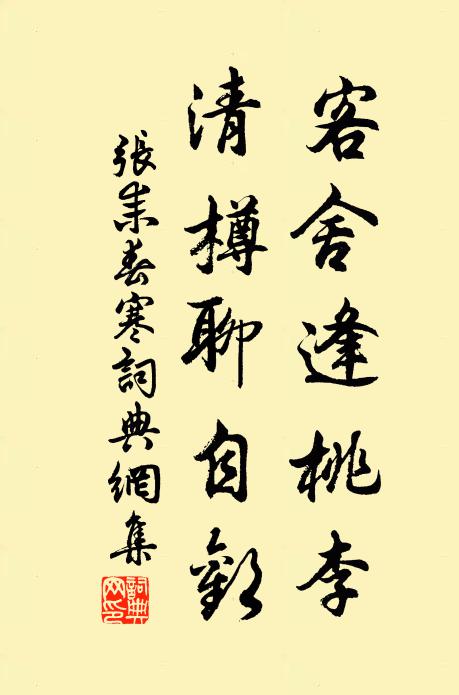 客舍逢桃李
清樽聊自歡
張耒春寒詞典網集
詞典网印